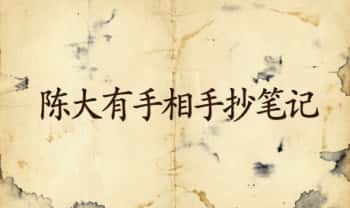 陈大有手相手抄笔记